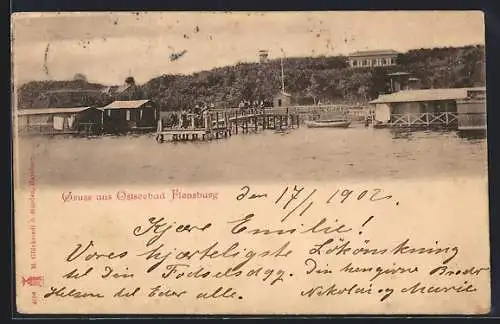 Gruss aus Ostseebad Flensburg
den 17/1 1902.
Kjære Emilie!
Vores hjærteligste Lökönskning
til Din Födselsdag. Din hengivne Broder
Helsen til Eder alle. Nikolai og Marie
M. Glückstadt & Münden, Hamburg.